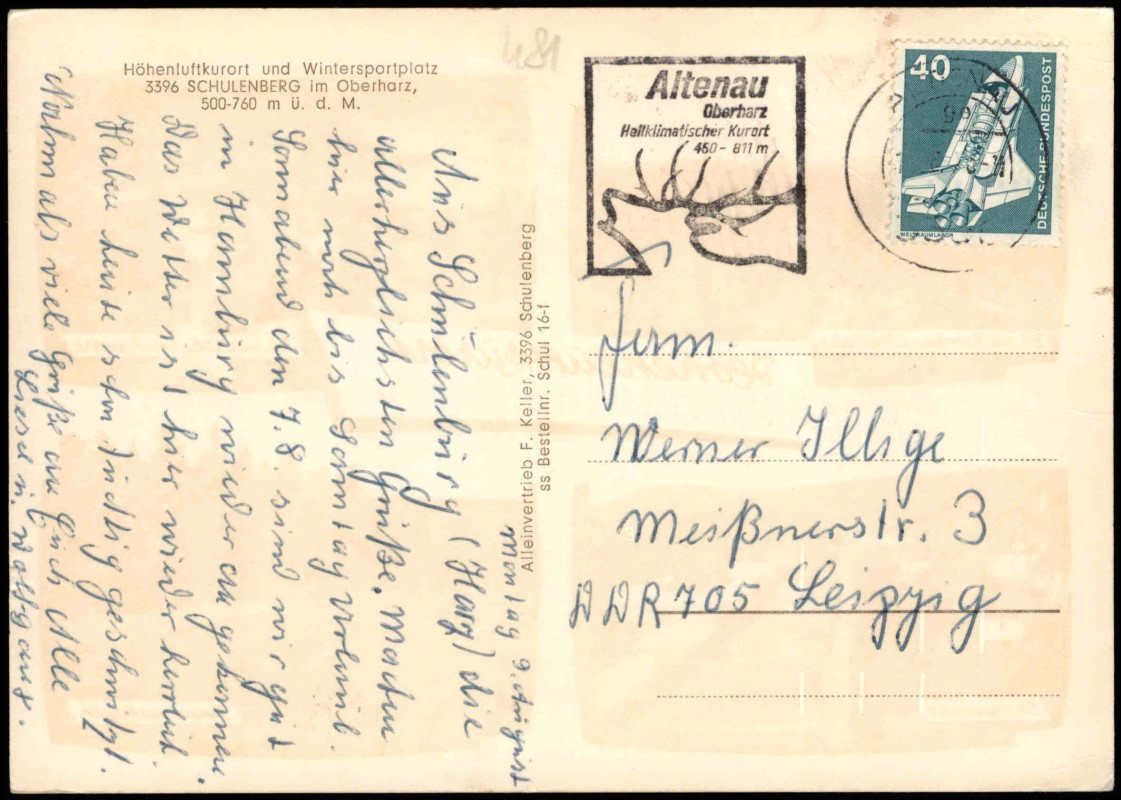 Höhenluftkurort und Wintersportplatz
3396 SCHULENBERG im Oberharz,
500-760 m ü. d. M.
Montag 9. August
Aus Schulenburg (Harz) die
allerherzlichsten Grüße. Machen
hier noch bis Sonntag Urlaub.
Sonnabend den 7.8. sind wir gut
in Hamburg wieder an gekommen.
Das Wetter ist hier wieder herrlich.
Haben heute schon tüchtig geschwitzt.
Nochmals viele Grüße an Euch Alle
Liesel u. Wolfgang.
Alleinvertrieb F. Keller, 3396 Schulenberg
ss Bestellnr. Schul 16-f
481
Altenau
Oberharz
Heilklimatischer Kurort
450-811 m
40
DEUTSCHE BUNDESPOST
WELTRAUMLABOR
Fam.
Werner Illge
Meißnerstr. 3
DDR 705 Leipzig